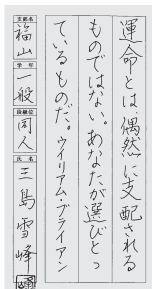 運命とは偶然に支配される
ものではない。あなたが選びとっ
ているものだ。ウイリアム・ブライアン
支部名 福山
学年 一般
段級位 同人
氏名 三島雪峰